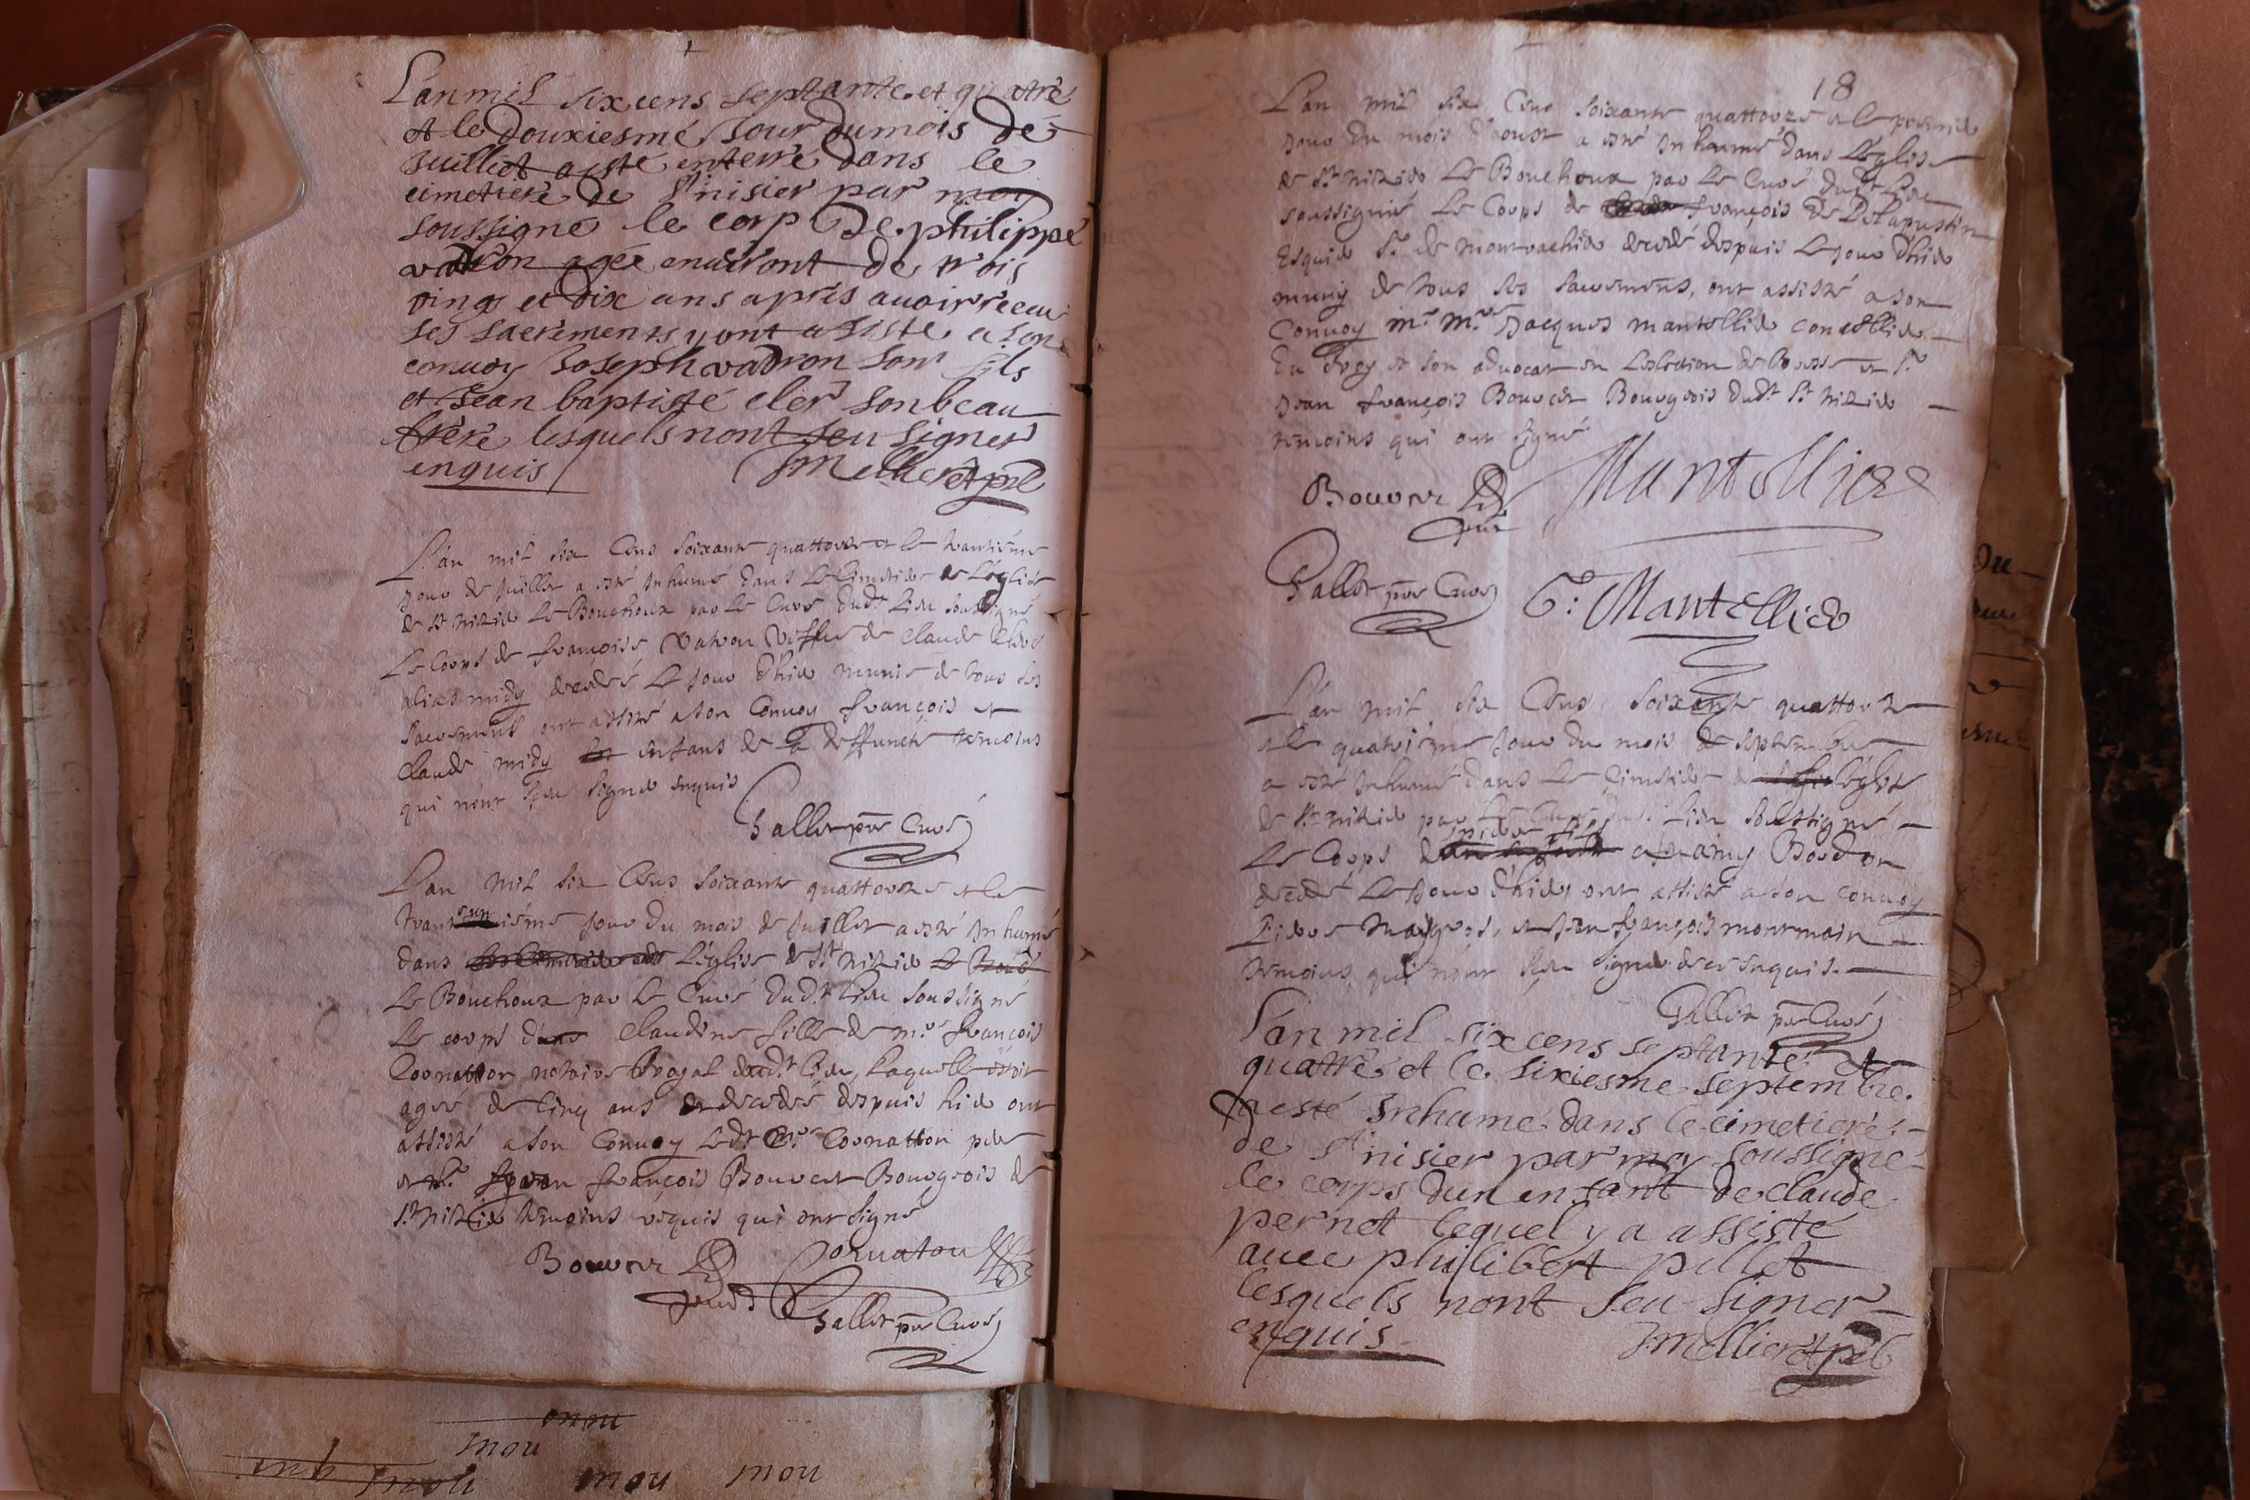 L'an mil six cens septante et quatre
et le douxiesme Jour du mois de
Juilliet a esté enterré dans le
cimetiere de St nisier par moy
soussigné le corp de philippe
vatron agée enuiront de trois
vingt et dix ans apres auoir receu
ses sacrements y ont assisté a son
conuoy Joseph vatron son fils
et Jean baptiste cler son beau
frere lesquels nont seu signer
enquis
L'an mil six Cens soixante quattorze et le trantiéme
jour de Juillet a esté Inhumé dans le Cimetiere de L'église
de St Nizier Le Bouchoux par Le Curé dudt Lieu soussigné
Le Corps de françoise Vatron Veffue de Claude
alias midy decedée Le jour d'hier munie de tous ses
sacremens ont assisté a son Conuoy françois et
Claude midy enfans de la deffuncte temoins
qui n'ont sçeu signer enquis
Gallet pre Curé
L'an mil six Cens soixante quattorze et le
trante uniéme jour du mois de Juillet a esté Inhumé
dans L'église de St Nizier
Le Bouchoux par Le Curé dudt Lieu soussigné
Le corps de Claudine fille de mre françois
Cornatton notaire Royal dudt Lieu, Laquelle estoit
agée de Cinq ans et decedée despuis hier ont
assisté a son Conuoy Ledt Mre Cornatton pere
et Sr Jean françois Bouuert Bourgeois de
St Nizier temoins requis qui ont signé
Bouuert Cornaton
Gallet pre Curé
18
L'an mil six Cens soixante quattorze et le premier
jour du mois d'aoust a esté Inhumé dans L'église
de St Nizier Le Bouchoux par Le Curé dudt Lieu
soussigné Le Corps de françois de
Esquier Sr de decedé despuis Le jour d'hier
muny de tous ses sacremens, ont assisté a son
Conuoy Mr Mre Jacques mantellier conseillier
du Roy et son aduocat en Leslection de Bresse et Sr
Jean françois Bouuert Bourgeois dudt St Nizier
temoins qui ont signé
Bouuert Mantellier
Gallet pre Curé Mantellier
L'an mil six Cens soixante quattorze
et le quatriéme jour du mois de septembre
a esté Inhumé dans Le Cimetiere de L'église
de St Nizier par Le Curé dudt Lieu soussigné
Le Corps
decedé Le jour d'hier, ont assisté a son conuoy
et Jean françois montmain
temoins, qui n'ont sçeu signer de ce enquis.
Gallet pre Curé
L'an mil six cens septante et
quattre et le sixiesme septembre
a esté Inhumé dans le cimetiere
de St nisier par moy soussigné
le corps dun enfant de claude
pernet lequel y a assisté
auec philibert pillet
lesquels nont seu signer
enquis
mou
mou
mou mou